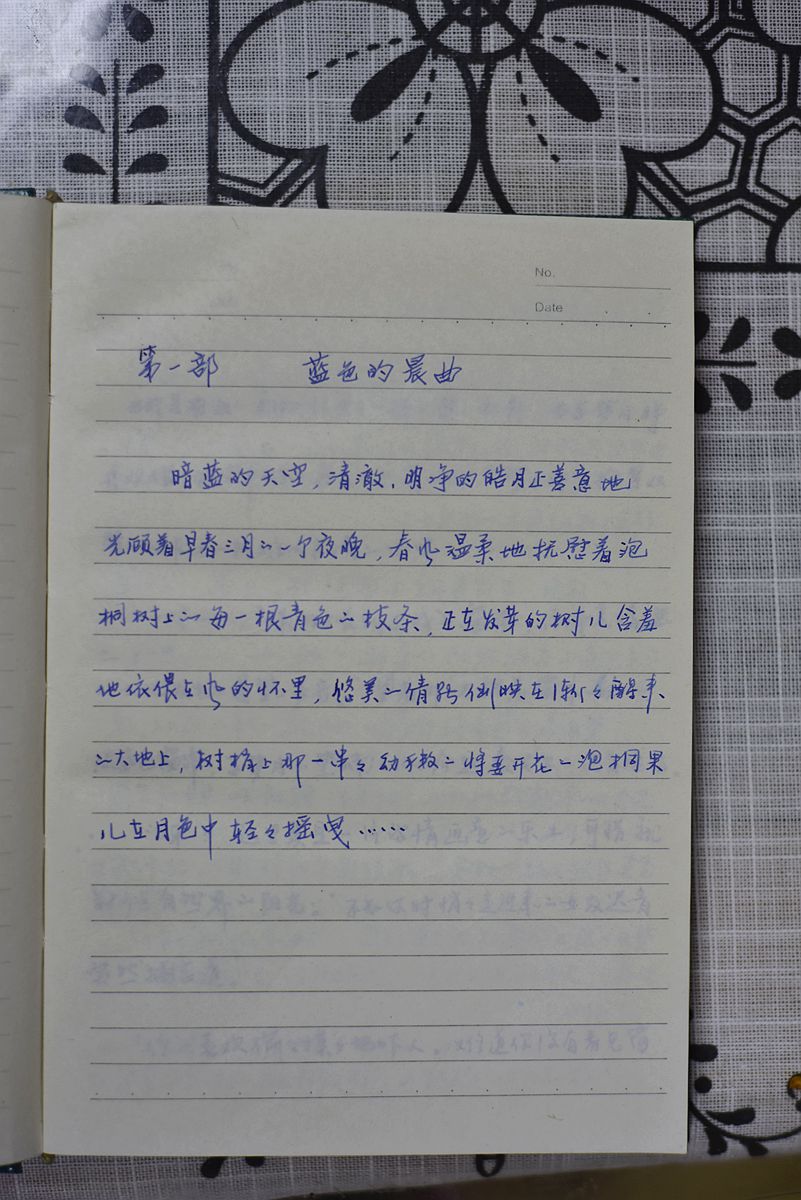 No.
Date
第一部 蓝色的晨曲
暗蓝的天空，清澈、明净的皓月正善意地
光顾着早春三月的一个夜晚，春风温柔地抚慰着泡
桐树上的每一根青色的枝条，正在发芽的树儿含羞
地依偎在风的怀里，悠美的倩影倒映在渐々醒来
的大地上，树梢上那一串々幼嫩的将要开花的泡桐果
儿在月色中轻々摇曳……